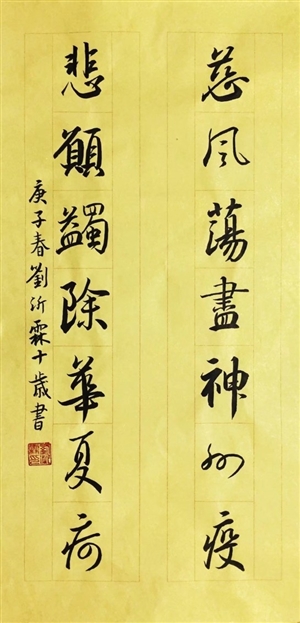 慈風蕩盡神州疫
悲願蠲除華夏疴
庚子春劉沂霖十歲書